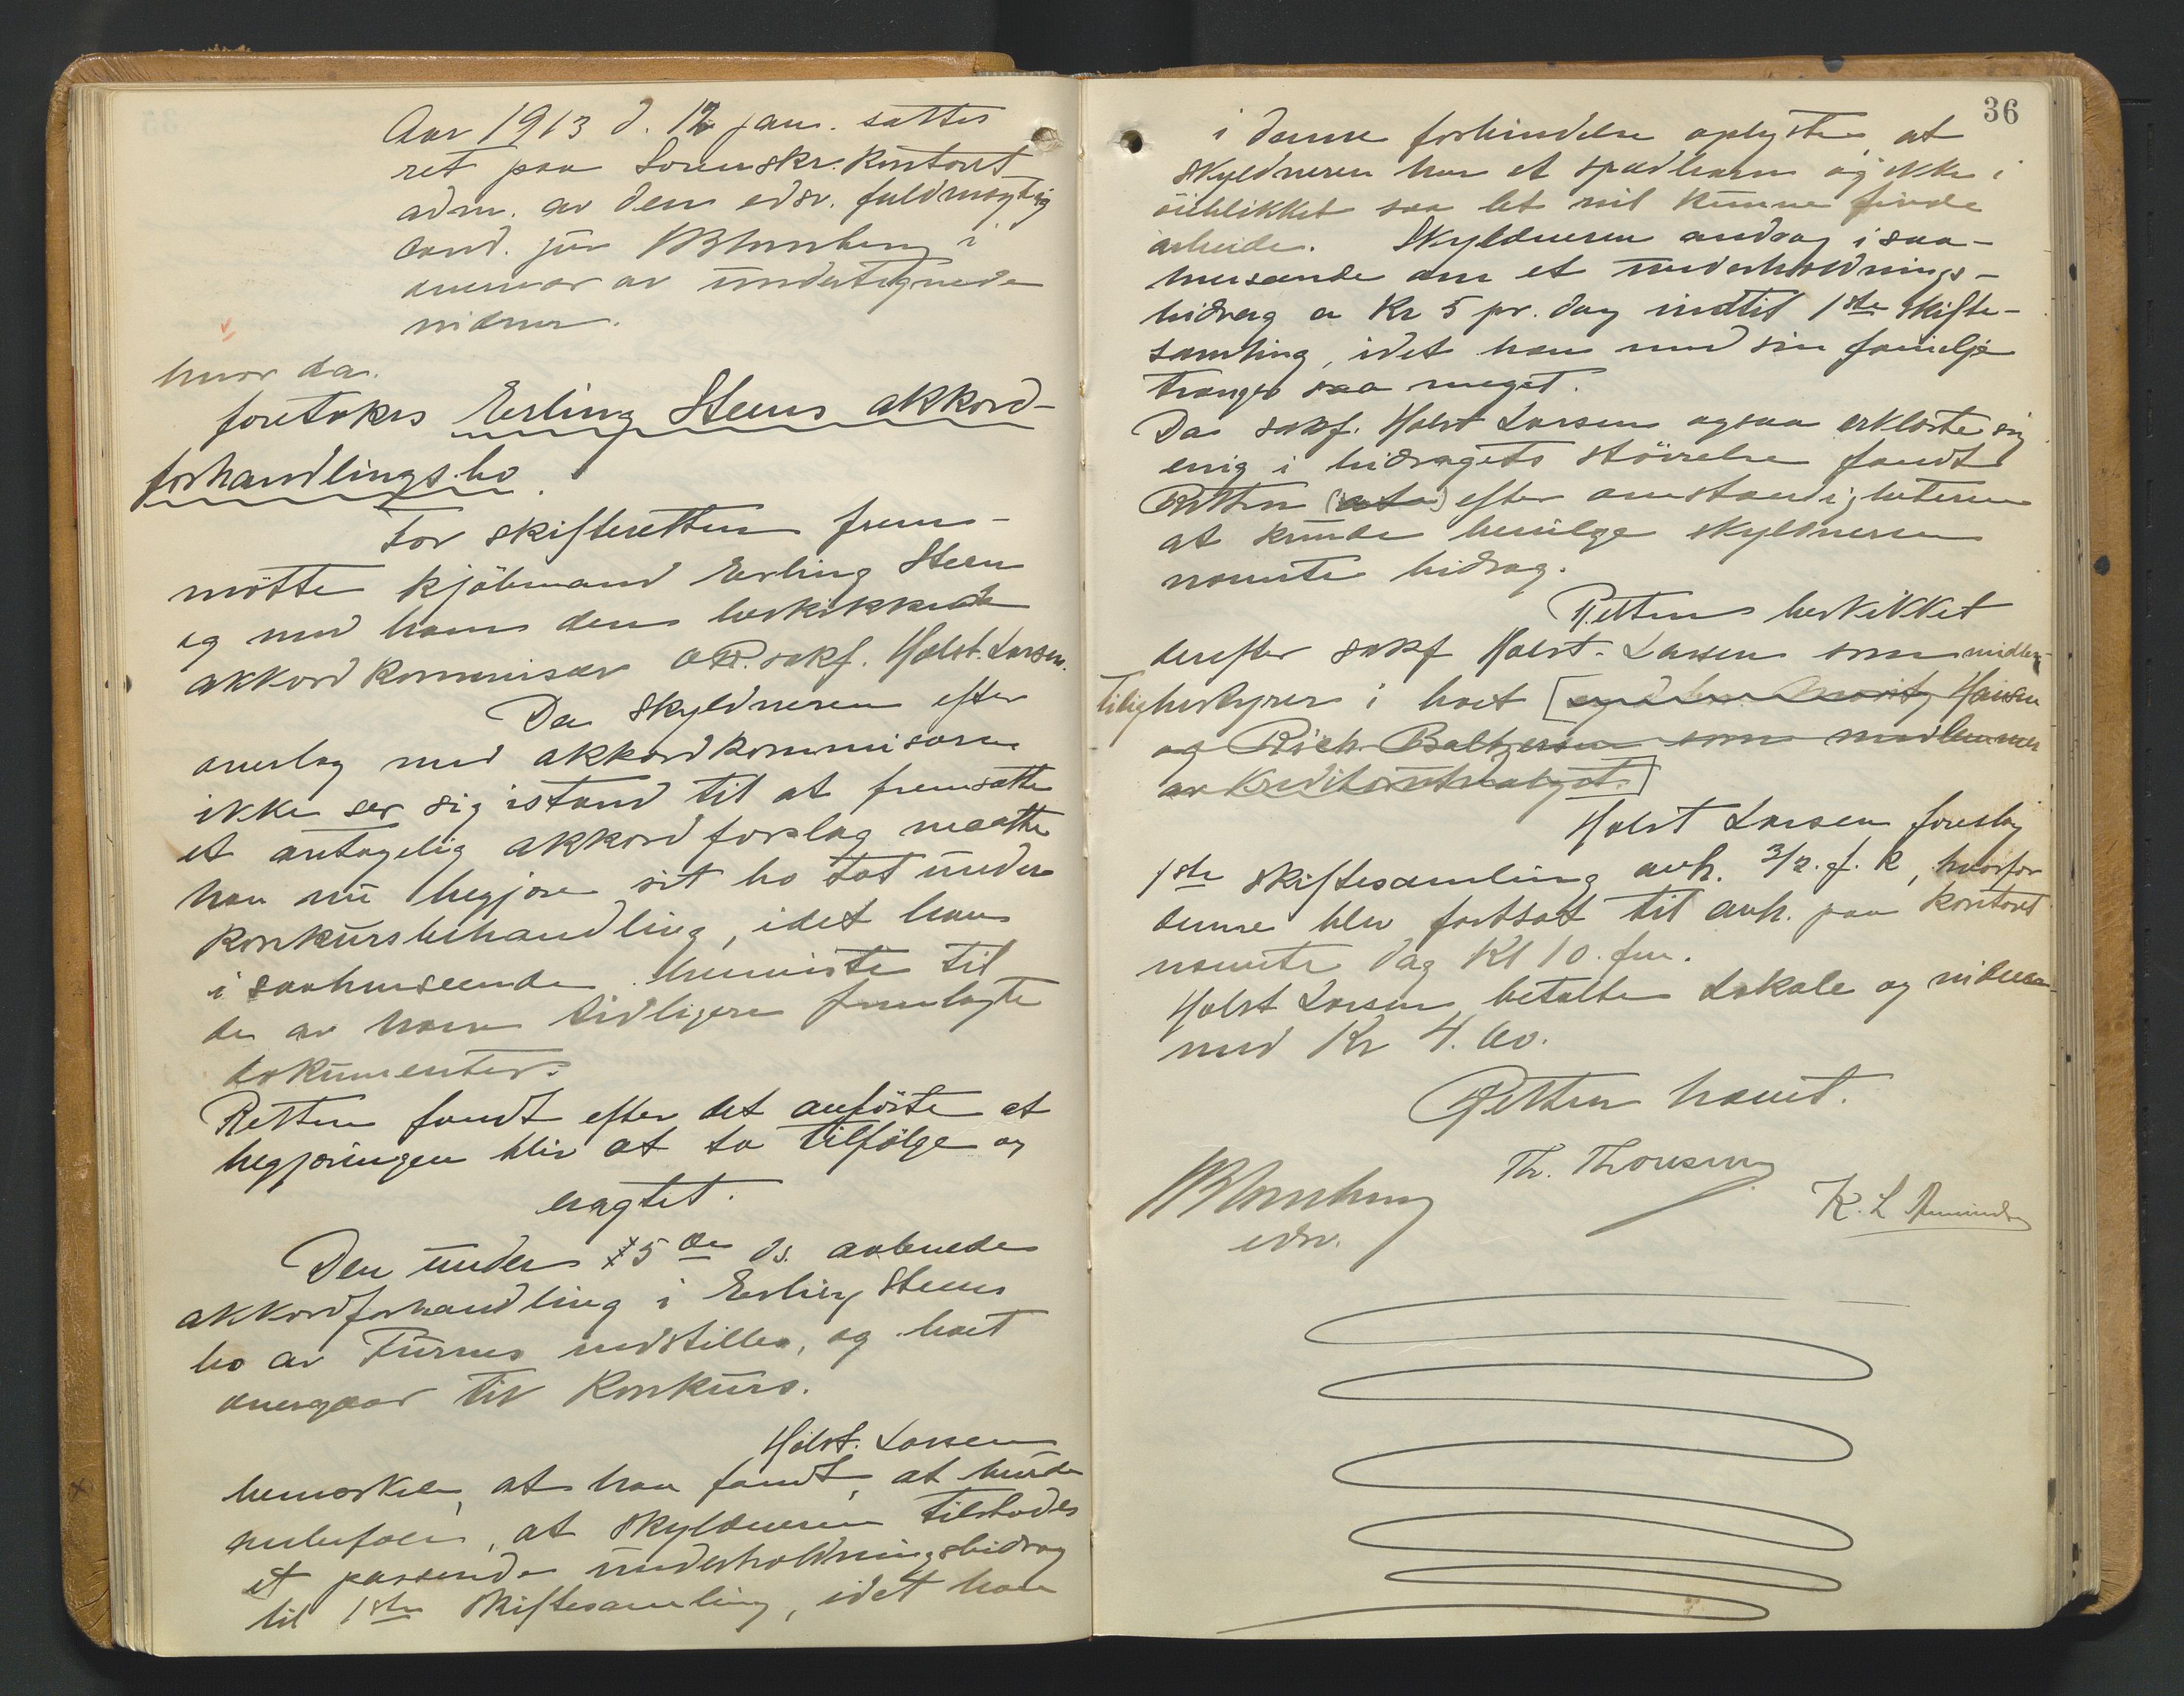 Aar 1913 d. 12 jan. sattes
ret paa Sorenskr. kontoret
adm. av den edsv. fuldmægtig
cand. jur Blomberg i
overvær av undertegnede
vidner.
hvor da.
foretokes Erling Steens akkord-
forhandlingsbo.
For skifteretten frem-
møtte kjøbmand Erling Steen
og med ham den beskikkede
akkordkommisær O.R. sakf. Holst-Larsen.
Da skyldneren efter
overlæg med akkordkommisæren
ikke ser sig istand til at fremsætte
et antagelig akkordforslag maatte
han nu begjære sit bo tat under
konkursbehandling, idet han
i saahenseende henviste til
de av ham tidligere fremlagte
dokumenter.
Retten fandt efter det anførte at
begjæringen blir at ta tilfølge og
eragtet.
Den under 5te ds. aabnede
akkordforhandling i Erling Steens
bo av Furnes indstilles, og boet
overgaar til Konkurs.
Holst-Larsen
bemerket, at han fandt, at burde
anbefale, at skyldneren tilstodes
et passende underholdningsbidrag
til 1ste skiftesamling, idet han
36
i denne forbindelse oplyste at
skyldneren har et spædbarn og ikke i
øieblikket saa let vil kunne finde
arbeide. Skyldneren androg i saa-
henseende om et underholdnings-
bidrag a Kr 5 pr. dag indtil 1ste skifte-
samling, idet han med sin familje
trænger saa meget.
Da sakf. Holst Larsen ogsaa erklærte sig
enig i bidragets størrelse fandt
Retten (at) efter omstændigheterne
at kunde bevilge skyldneren
nævnte bidrag.
Retten beskikket
derefter sakf Holst-Larsen som midler-
tilig bestyrer i boet [og Moritz Hansen
og Rich. Baltzersen som medlemmer
av kreditorutvalget.]
Holst Larsen foreslog
1ste skiftesamling avh. 3/2. f. k, hvorfor
denne blev fortsat til avh. paa kontoret
nævnte dag Kl 10. fm.
Holst Larsen betalte Lokale og vidner
med Kr 4.00.
Retten hævet.
Blomberg
edsv.
Th. Thoresen
K. L. Amundsen